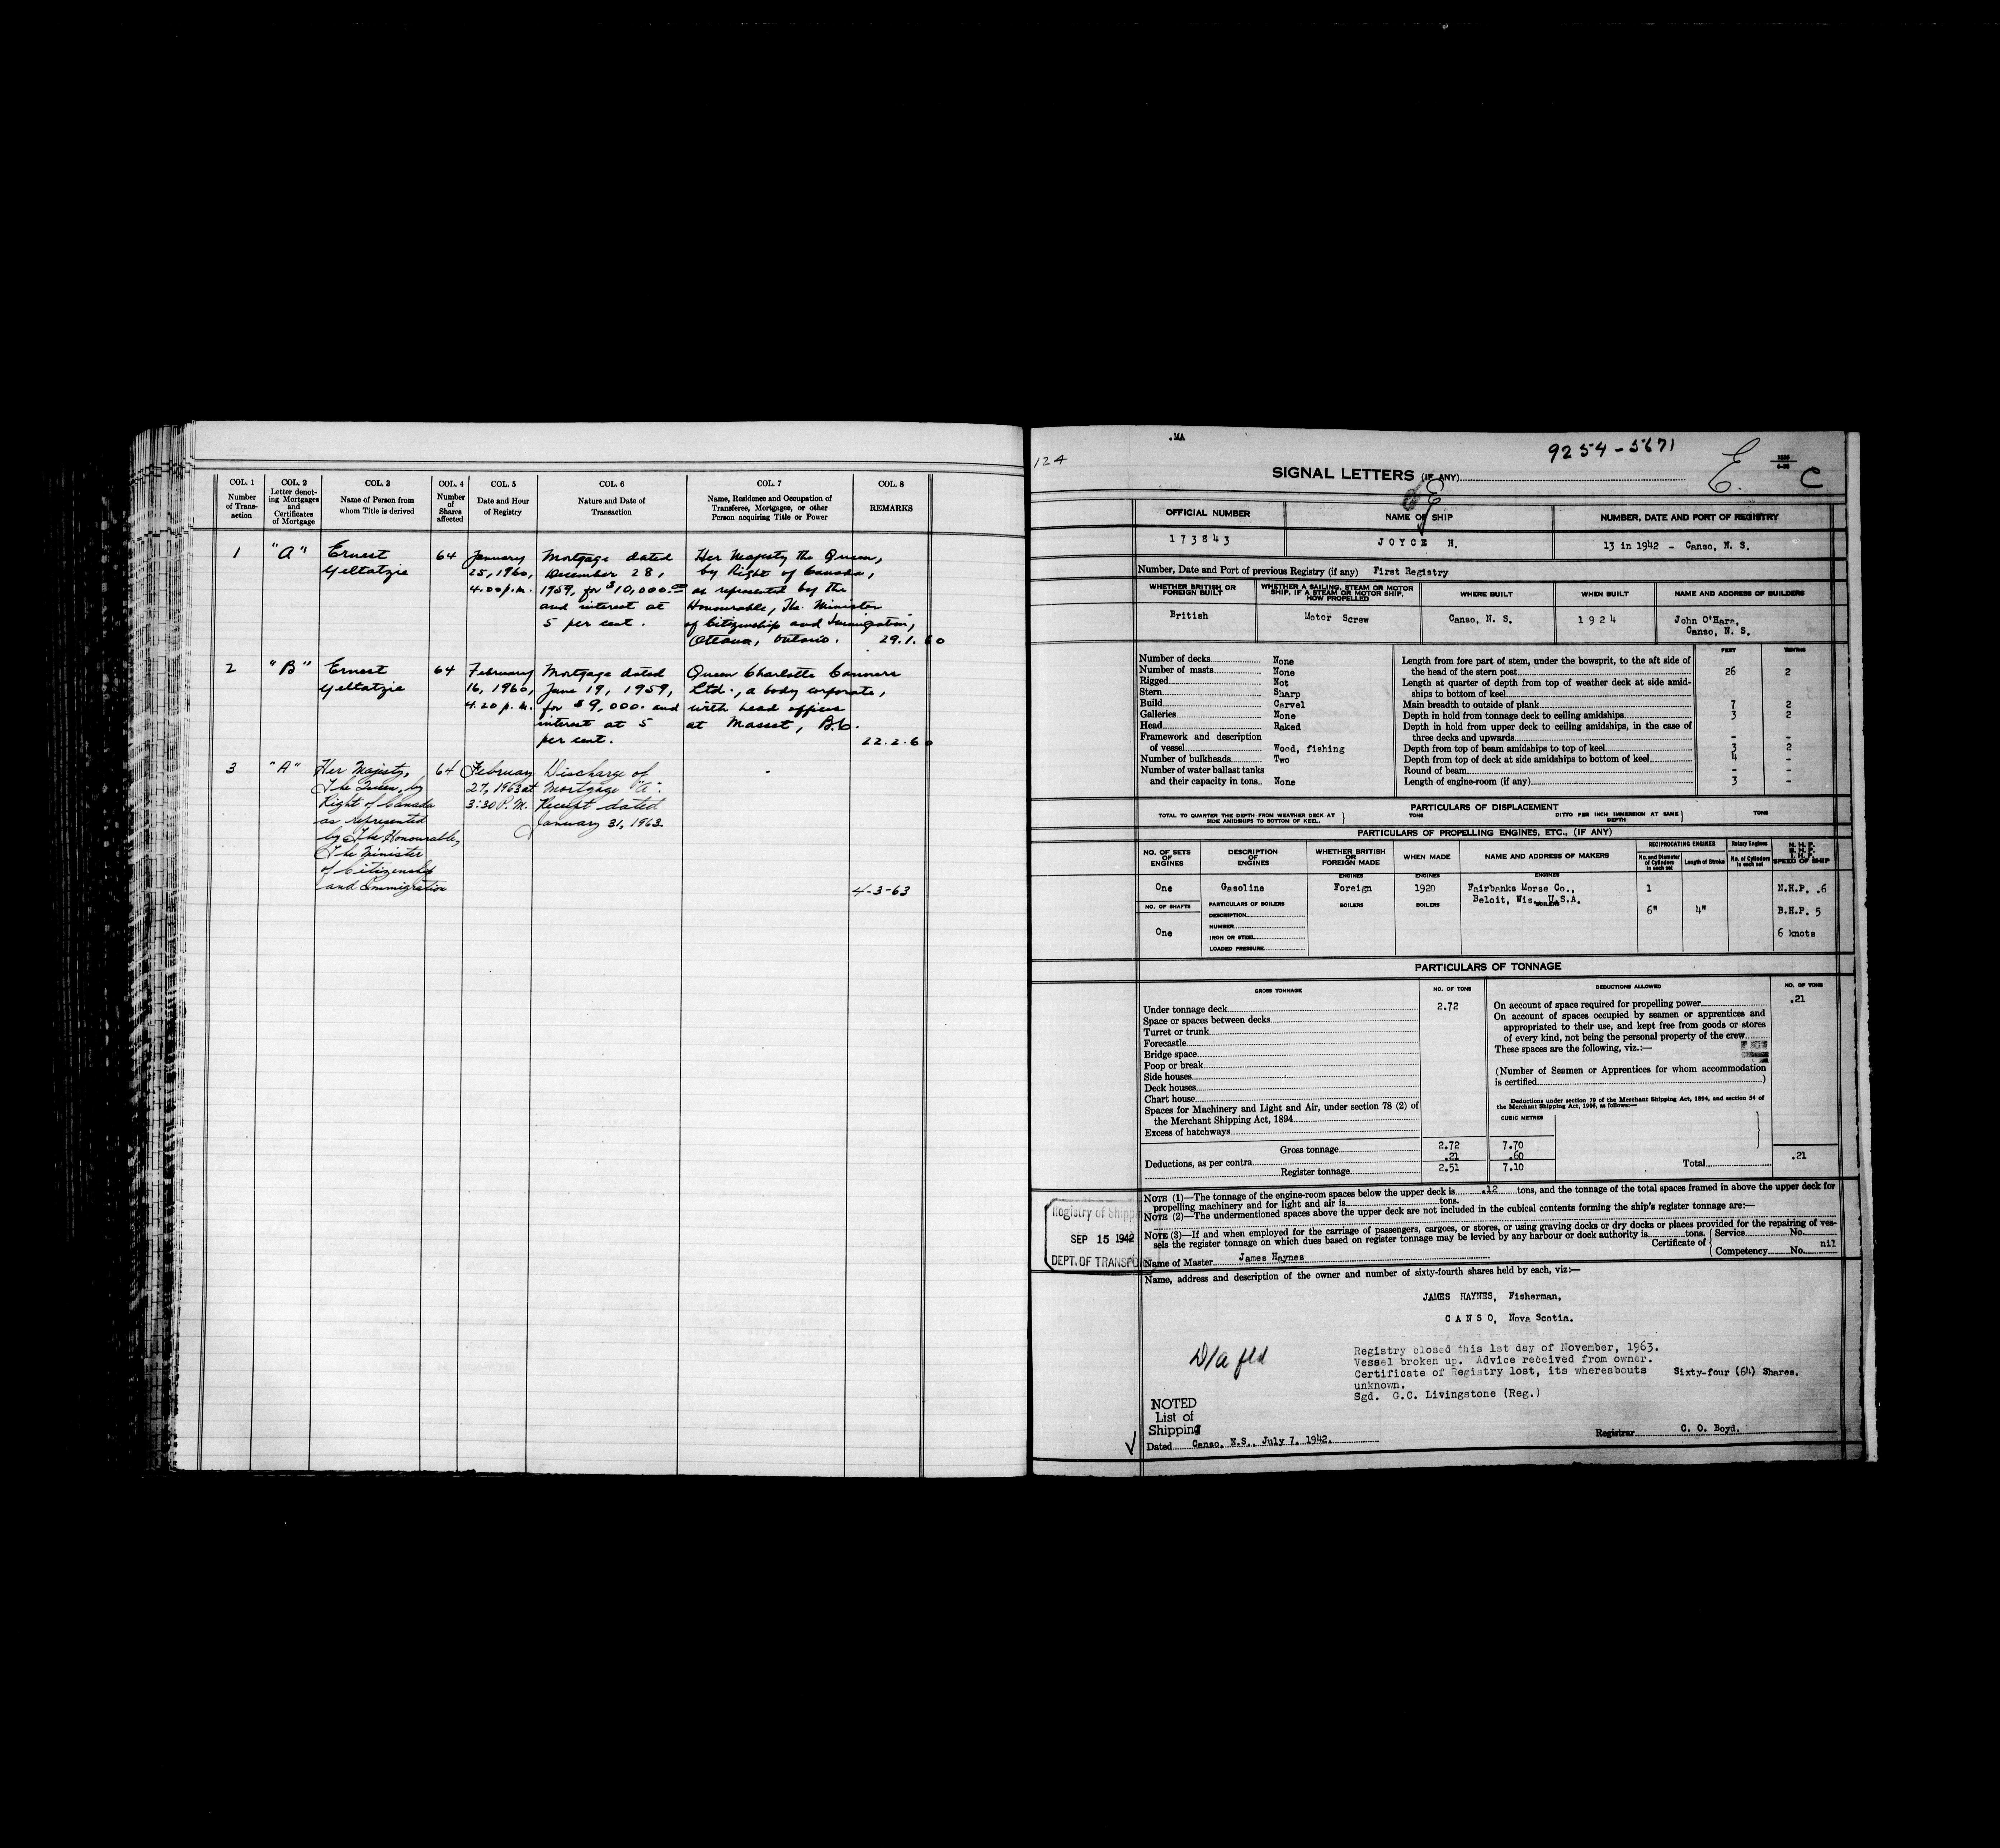 COL. 1
Number
of Trans-
action
COL. 2
Letter denot-
ing Mortgages
and
Certificates
of Mortgage
COL. 3
Name of Person from
whom Title is derived
COL. 4
Number
of
Shares
affected
COL. 5
Date and Hour
of Registry
COL. 6
Nature and Date of
Transaction
COL. 7
Name, Residence and Occupation of
Transferee, Mortgagee, or other
Person acquiring Title or Power
COL. 8
REMARKS
1
"A"
Ernest
Yeltatzie
64
January
25, 1960,
4.00 p.m.
Mortgage dated
December 28,
1959, for $10,000.00
and interest at
5 per cent.
Her Majesty the Queen,
by Right of Canada,
as represented by the
Honourable, The Minister
of Citizenship and Immigration,
Ottawa, Ontario.
29.1.60
2
"B"
Ernest
Yeltatzie
64
February
16, 1960,
4.20 p.m.
Mortgage dated
June 19, 1959,
for $9,000. and
interest at 5
per cent.
Queen Charlotte Canners
Ltd., a body corporate,
with head offices
at Masset, B.C.
22.2.60
3
"A"
Her Majesty,
The Queen, by
Right of Canada
as represented
by The Honourable,
The Minister
of Citizenship
and Immigration
64
February
27, 1963 at
3:30 P.M.
Discharge of
Mortgage "A".
Receipt dated
January 31, 1963.
4-3-63
.MA
124
9254-5671
E.
C
SIGNAL LETTERS (IF ANY)
E
OFFICIAL NUMBER
NAME OF SHIP
NUMBER, DATE AND PORT OF REGISTRY
173843
JOYCE H.
13 in 1942 - Canso, N. S.
Number, Date and Port of previous Registry (if any) First Registry
WHETHER BRITISH OR
FOREIGN BUILT
WHETHER A SAILING, STEAM OR MOTOR
SHIP, IF A STEAM OR MOTOR SHIP,
HOW PROPELLED
WHERE BUILT
WHEN BUILT
NAME AND ADDRESS OF BUILDERS
British
Motor Screw
Canso, N. S.
1924
John O'Hara,
Canso, N. S.
FEET
TENTHS
Number of decks None
Number of masts None
Rigged Not
Stern Sharp
Build Carvel
Galleries None
Head Raked
Framework and description
of vessel Wood, fishing
Number of bulkheads Two
Number of water ballast tanks
and their capacity in tons None
Length from fore part of stem, under the bowsprit, to the aft side of
the head of the stern post 26 2
Length at quarter of depth from top of weather deck at side amid-
ships to bottom of keel
Main breadth to outside of plank 7 2
Depth in hold from tonnage deck to ceiling amidships 3 2
Depth in hold from upper deck to ceiling amidships, in the case of
three decks and upwards - -
Depth from top of beam amidships to top of keel 3 2
Depth from top of deck at side amidships to bottom of keel 4 -
Round of beam - -
Length of engine-room (if any) 3 -
PARTICULARS OF DISPLACEMENT
TOTAL TO QUARTER THE DEPTH FROM WEATHER DECK AT
SIDE AMIDSHIPS TO BOTTOM OF KEEL
TONS
DITTO PER INCH IMMERSION AT SAME
DEPTH
TONS
PARTICULARS OF PROPELLING ENGINES, ETC., (IF ANY)
NO. OF SETS
OF
ENGINES
DESCRIPTION
OF
ENGINES
WHETHER BRITISH
OR
FOREIGN MADE
WHEN MADE
NAME AND ADDRESS OF MAKERS
RECIPROCATING ENGINES
No. and Diameter
of Cylinders
in each set
Length of Stroke
Rotary Engines
No. of Cylinders
in each set
N. H. P.
B. H. P.
I. H. P.
SPEED OF SHIP
ENGINES
ENGINES
ENGINES
One
Gasoline
Foreign
1920
Fairbanks Morse Co.,
Beloit, Wis. U.S.A.
1
6"
4"
N.H.P. .6
B.H.P. 5
6 knots
NO. OF SHAFTS
One
PARTICULARS OF BOILERS
BOILERS
BOILERS
BOILERS
DESCRIPTION
NUMBER
IRON OR STEEL
LOADED PRESSURE
PARTICULARS OF TONNAGE
GROSS TONNAGE
NO. OF TONS
DEDUCTIONS ALLOWED
NO. OF TONS
Under tonnage deck 2.72
Space or spaces between decks
Turret or trunk
Forecastle
Bridge space
Poop or break
Side houses
Deck houses
Chart house
Spaces for Machinery and Light and Air, under section 78 (2) of
the Merchant Shipping Act, 1894
Excess of hatchways
On account of space required for propelling power .21
On account of spaces occupied by seamen or apprentices and
appropriated to their use, and kept free from goods or stores
of every kind, not being the personal property of the crew
These spaces are the following, viz.:—
(Number of Seamen or Apprentices for whom accommodation
is certified )
Deductions under section 79 of the Merchant Shipping Act, 1894, and section 54 of
the Merchant Shipping Act, 1906, as follows:—
CUBIC METRES
Gross tonnage 2.72 7.70
Deductions, as per contra .21 .60
Register tonnage 2.51 7.10
Total .21
NOTE (1)—The tonnage of the engine-room spaces below the upper deck is .12 tons, and the tonnage of the total spaces framed in above the upper deck for
propelling machinery and for light and air is tons.
NOTE (2)—The undermentioned spaces above the upper deck are not included in the cubical contents forming the ship's register tonnage are:—
NOTE (3)—If and when employed for the carriage of passengers, cargoes, or stores, or using graving docks or dry docks or places provided for the repairing of ves-
sels the register tonnage on which dues based on register tonnage may be levied by any harbour or dock authority is tons.
Certificate of
Service No.
Competency No.
nil
Registry of Shipp
SEP 15 1942
DEPT. OF TRANSPO
Name of Master James Haynes
Name, address and description of the owner and number of sixty-fourth shares held by each, viz:—
JAMES HAYNES, Fisherman,
CANSO, Nova Scotia.
Registry closed this 1st day of November, 1963.
Vessel broken up. Advice received from owner.
Certificate of Registry lost, its whereabouts
unknown.
Sgd. G.C. Livingstone (Reg.)
Sixty-four (64) Shares.
NOTED
List of
Shipping
Dated Canso, N.S., July 7, 1942.
Registrar C. O. Boyd.